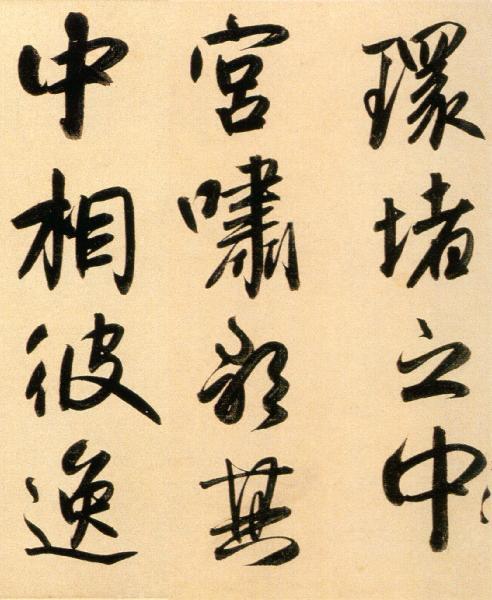 環堵之中
宮嘯歌無
中相彼逸